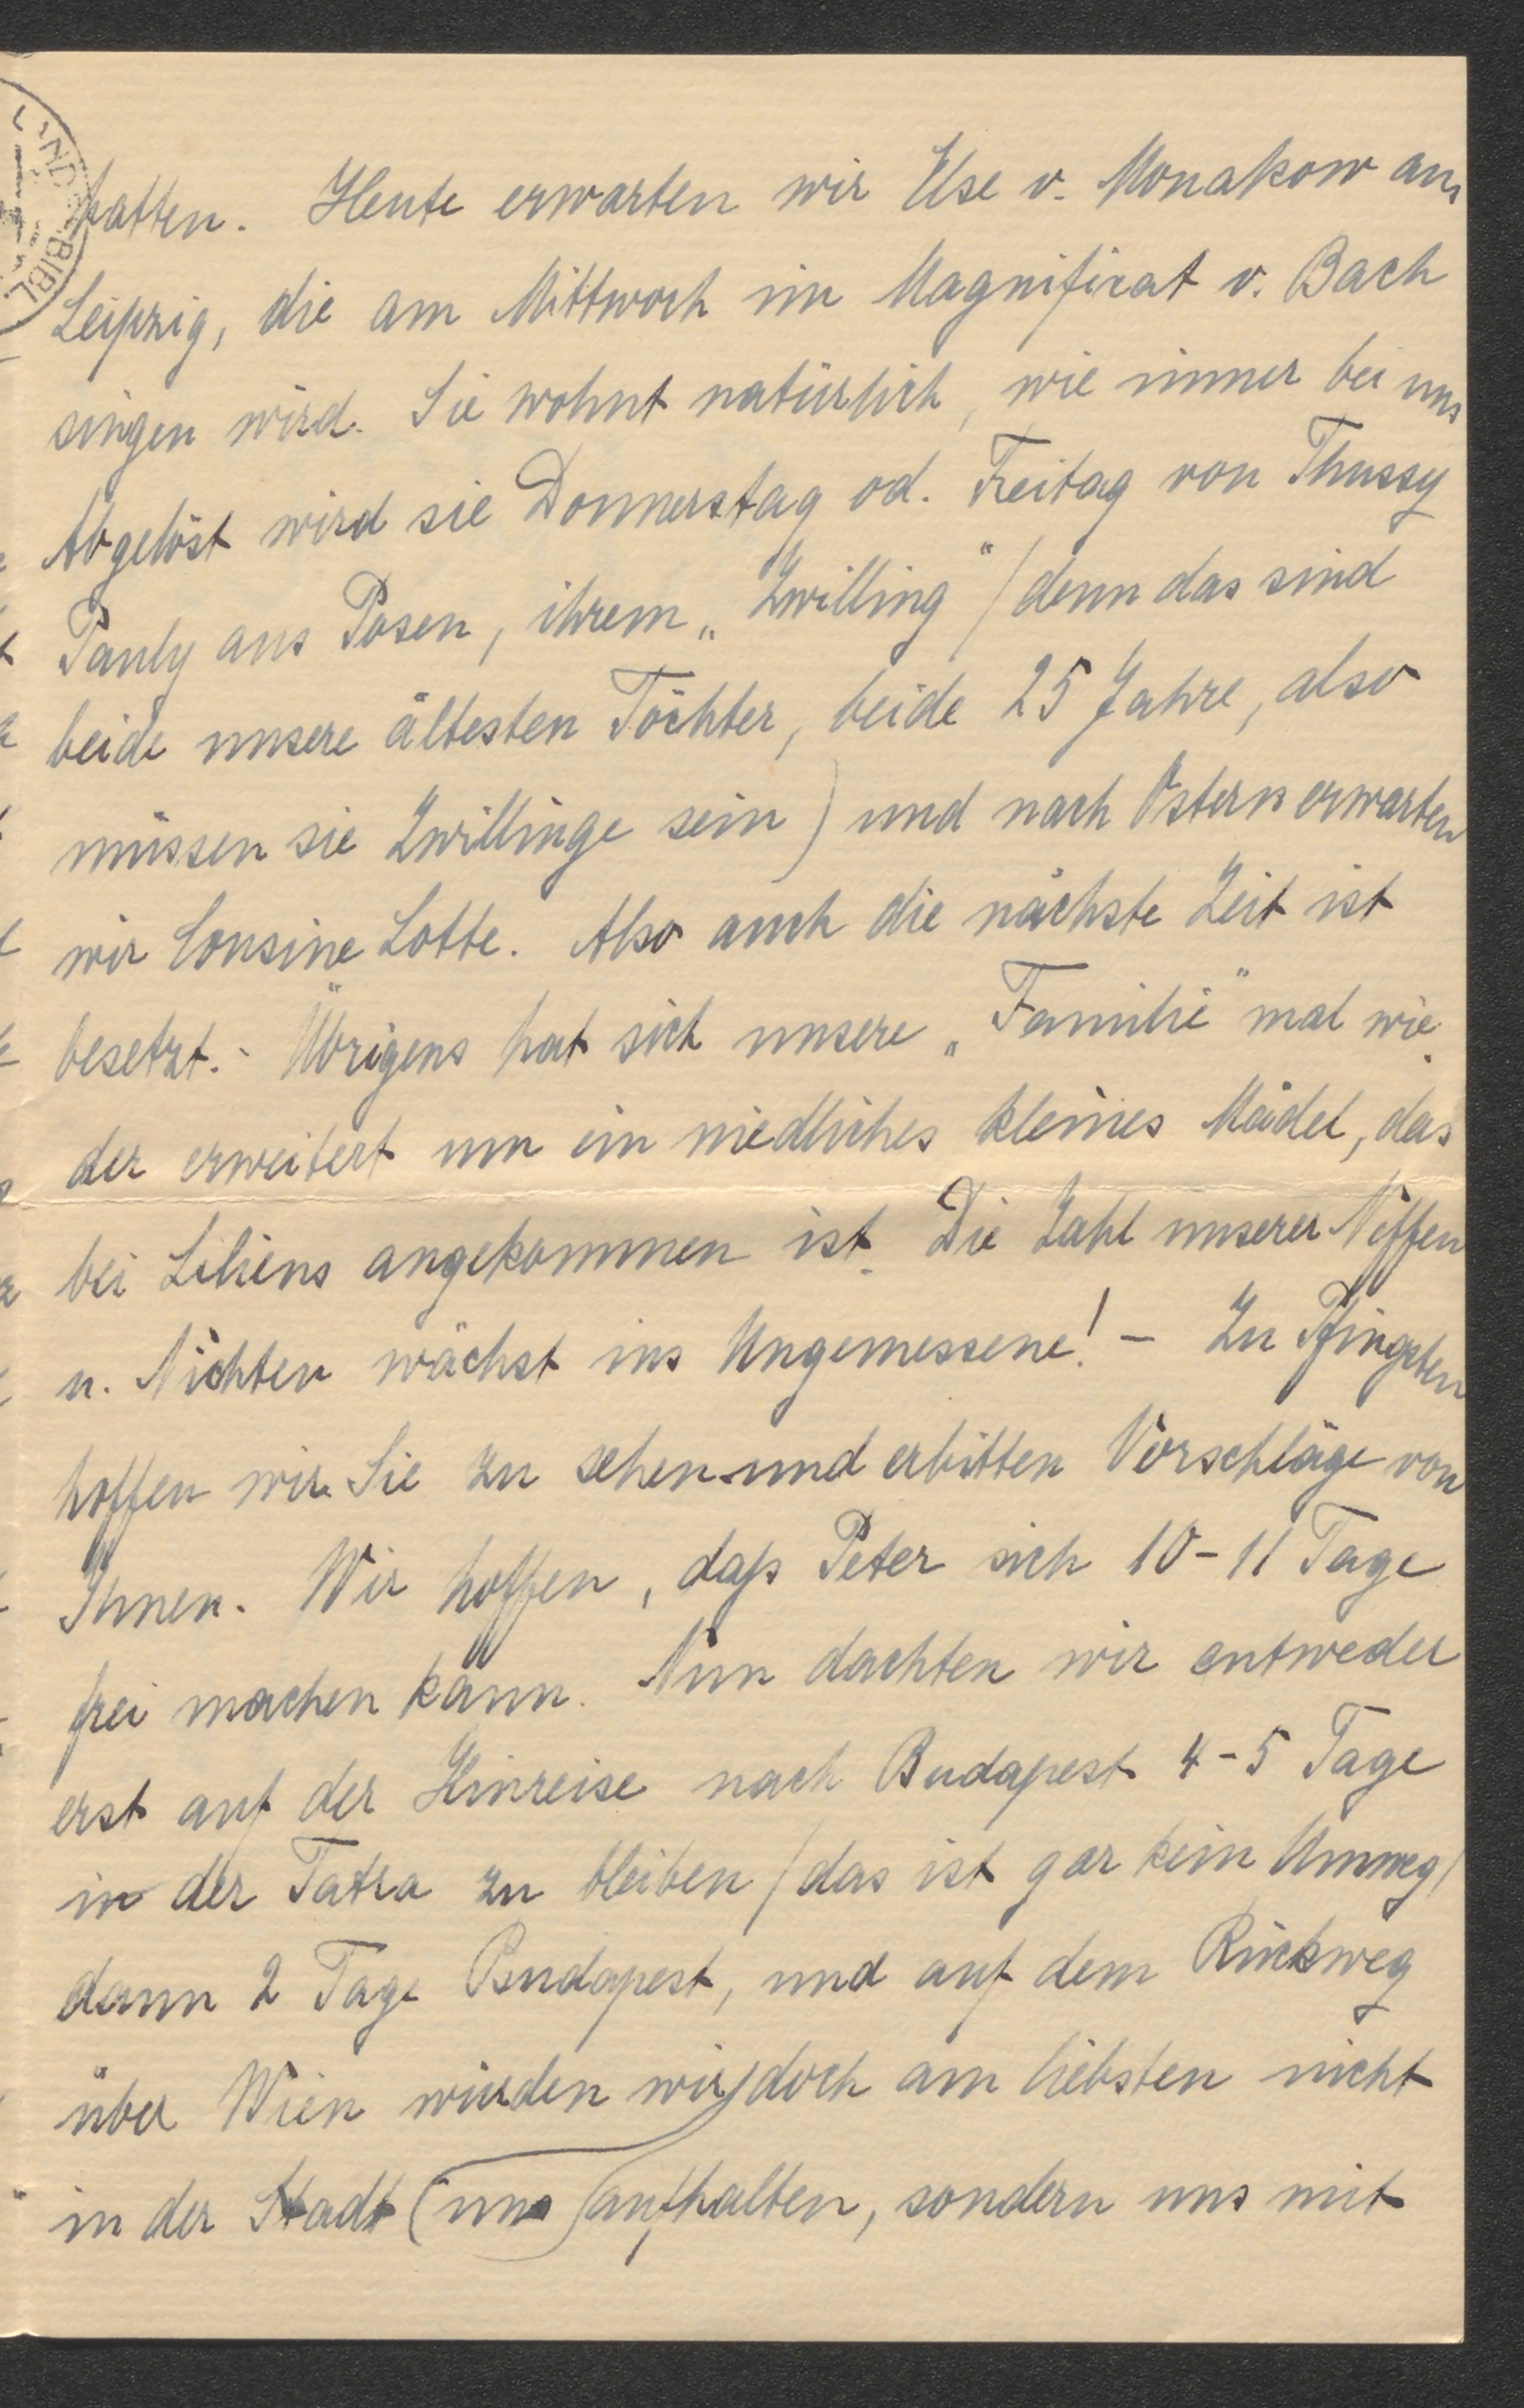 hatten. Heute erwarten wir Else v. Monakow aus
Leipzig, die am Mittwoch im Magnificat v. Bach
singen wird. Sie wohnt natürlich, wie immer bei uns
Abgelöst wird sie Donnerstag od. Freitag von Thussy
Pauly aus Posen, ihrem „Zwilling" (denn das sind
beide unsere ältesten Töchter, beide 25 Jahre, also
müssen sie Zwillinge sein) und nach Ostern erwarten
wir Cousine Lotte. Also auch die nächste Zeit ist
besetzt. - Übrigens hat sich unsere „Familie" mal wie
der erweitert um ein niedliches kleines Mädel, das
bei Liliens angekommen ist. Die Zahl unserer Neffen
u. Nichten wächst ins Ungemessene! - Zu Pfingsten
hoffen wir Sie zu sehen und erbitten Vorschläge von
Ihnen. Wir hoffen, daß Peter sich 10-11 Tage
frei machen kann. Nun dachten wir entweder
erst auf der Hinreise nach Budapest 4-5 Tage
in der Tatra zu bleiben (das ist gar kein Umweg)
dann 2 Tage Budapest, und auf dem Rückweg
über Wien würden wir doch am liebsten nicht
in der Stadt (uns) aufhalten, sondern uns mit
LANDESBIBL